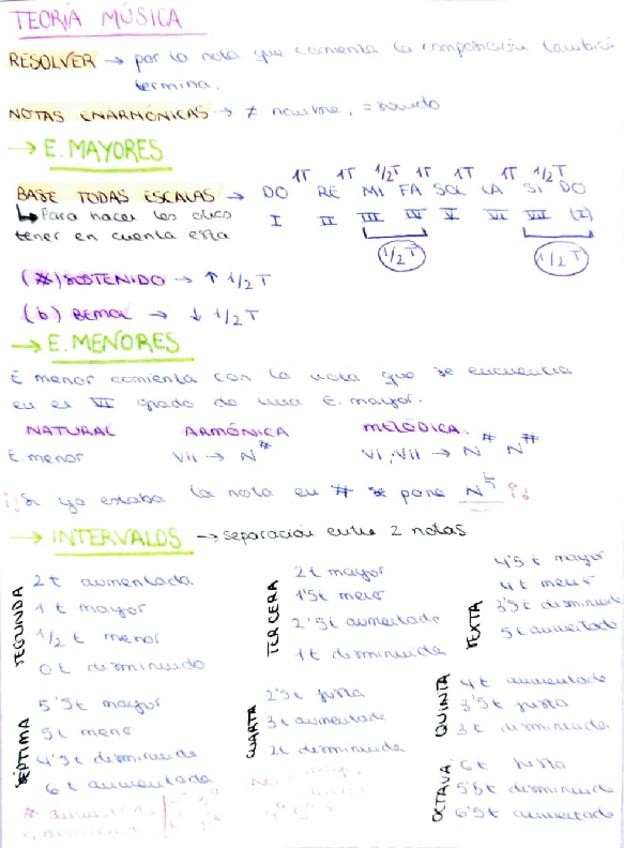 TEORÍA MÚSICA
RESOLVER → por la nota que comienza la composición también
termina.
NOTAS ENARMÓNICAS → ≠ nombre, = sonido
→ E. MAYORES
1T 1T 1/2T 1T 1T 1T 1/2T
BASE TODAS ESCALAS → DO RE MI FA SOL LA SI DO
↳ Para hacer las otras I II III IV V VI VII (I)
tener en cuenta esta
1/2T 1/2T
(#) SOSTENIDO → ↑ 1/2 T
(b) BEMOL → ↓ 1/2 T
→ E. MENORES
E menor comienza con la nota que se encuentra
en el VI grado de una E. mayor.
NATURAL ARMÓNICA MELÓDICA
E. menor VII → N# VI, VII → N# N#
¡¡Si ya estaba la nota en # se pone N
→ INTERVALOS → separación entre 2 notas
SEGUNDA
2t aumentada
1 t mayor
1/2 t menor
0t disminuida
TERCERA
2t mayor
1'5t menor
2'5t aumentada
1t disminuida
SEXTA
4'5 t mayor
4t menor
3'5t disminuida
5t aumentada
SÉPTIMA
5'5t mayor
5t menor
4'5t disminuida
6t aumentada
CUARTA
2'5t justa
3t aumentada
2t disminuida
QUINTA
4t aumentada
3'5t justa
3t disminuida
OCTAVA
6t justa
5'5t disminuida
6'5t aumentada